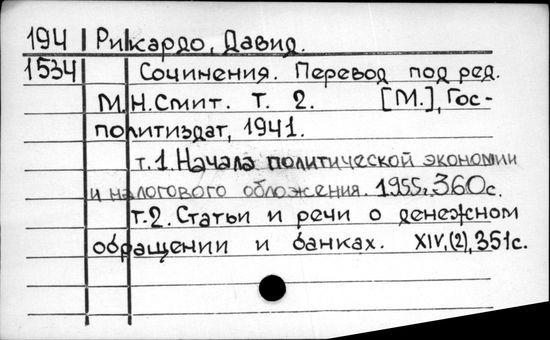 194 Рикардо, Давид.
1534 Сочинения. Перевод под ред.
М.Н.Смит. Т. 2. [М.], Гос-
политиздат, 1941.
т.1. Начала политической экономии
и налогового обложения. 1955г. 360с.
т.2. Статьи и речи о денежном
обращении и банках. XIV,(2),351с.